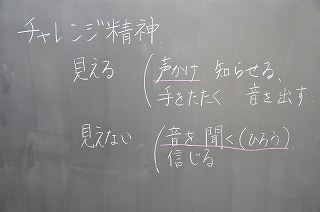 チャレンジ精神.
見える (声かけ. 知らせる、
手をたたく 音を出す
見えない (音を聞く(ひろう)
信じる